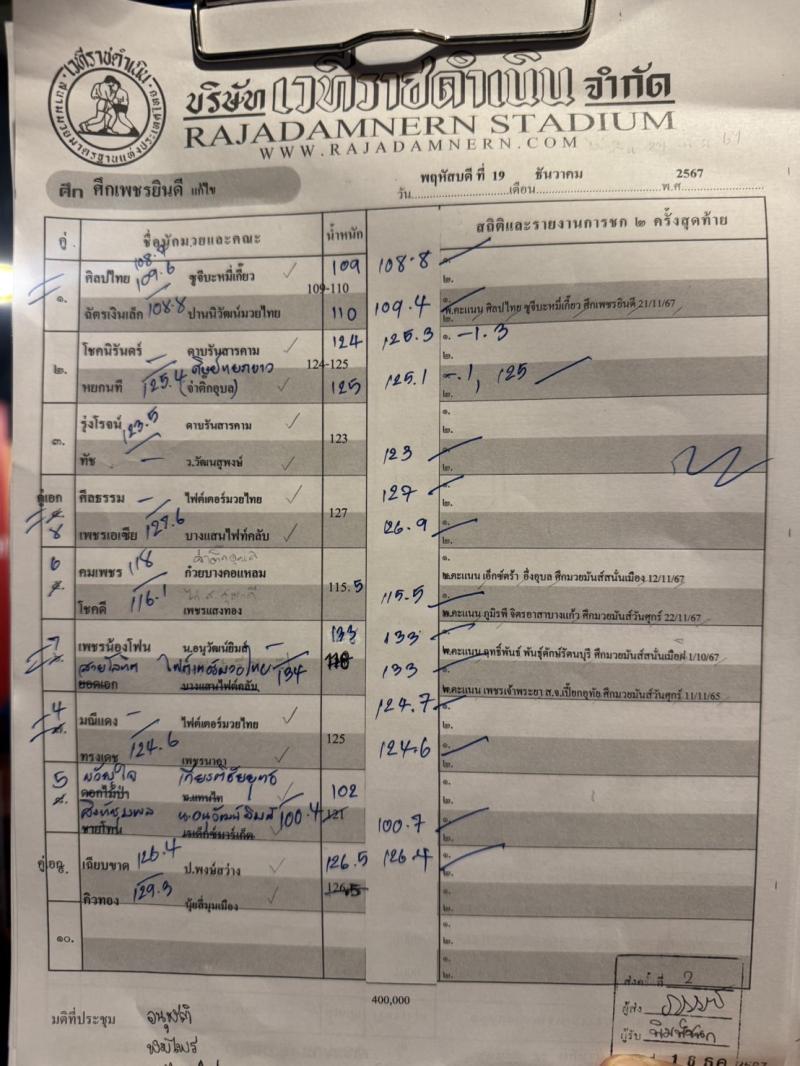 เวทีราชดำเนิน
บริษัท เวทีราชดำเนิน จำกัด
RAJADAMNERN STADIUM
WWW.RAJADAMNERN.COM
ศึก ศึกเพชรยินดี แก้ไข
วัน พฤหัสบดี ที่ 19 เดือน ธันวาคม พ.ศ. 2567
คู่ ชื่อนักมวยและคณะ น้ำหนัก สถิติและรายงานการชก ๒ ครั้งสุดท้าย
๑. ศิลปไทย 109.6 ซูจีบะหมี่เกี๊ยว 109 108.8 ๑.
109-110 ๒.
ฉัตรเงินเล็ก 108.8 ปานนิวัฒน์มวยไทย 110 109.4 พ.คะแนน ศิลปไทย ซูจีบะหมี่เกี๊ยว ศึกเพชรยินดี 21/11/67
๒. โชคนิรันดร์ ดาบรันสารคาม 124 125.3 ๑. -1.3
124-125 ๒.
หยกนที 125.4 (จ่าติกอุบล) 125 125.1 -.1, 125
๒.
๓. รุ่งโรจน์ 123.5 ดาบรันสารคาม 123 ๑.
๒.
ทัช ว.วัฒนสุพงษ์ 123 ๑.
๒.
คู่เอก ศีลธรรม ไฟต์เตอร์มวยไทย 127 127 ๑.
๒.
8 เพชรเอเชีย 127.6 บางแสนไฟท์คลับ 126.9 ๑.
๒.
6 คมเพชร 118 ก๋วยบางคอแหลม 115.5 ๑.
๒.คะแนน เอ็กซ์ตร้า อึ่งอุบล ศึกมวยมันส์สนั่นเมือง 12/11/67
โชคดี 116.1 เพชรแสงทอง 115.5 ๒.คะแนน ภูมิรพี จิตรอาสาบางแก้ว ศึกมวยมันส์วันศุกร์ 22/11/67
7 เพชรน้องโฟน น.อนุวัฒน์ยิมส์ 133 133 ๒.คะแนน ฤทธิ์พันธ์ พันธุ์ศักษ์รัตนบุรี ศึกมวยมันส์สนั่นเมือง 1/10/67
ไฟต์เตอร์มวยไทย 134 118 133
ยอดเอก บางแสนไฟต์คลับ ๒.คะแนน เพชรเจ้าพระยา ส.จ.เปี๊ยกอุทัย ศึกมวยมันส์วันศุกร์ 11/11/65
4 มณีแดง ไฟต์เตอร์มวยไทย 125 124.7 ๒.
ทรงเดช 124.6 เพชรนาคา 124.6 ๑.
๒.
5 ขวัญใจ เกียรติชัยยุทธ 102 ๑.
ดอกไม้ป่า ๒.
สิงห์ชุมพล น.อนุวัฒน์ยิมส์ 100.4 121 100.7 ๑.
ชายโทน ๒.
คู่เอก เฉียบขาด 126.4 ป.พงษ์สว่าง 126.5 126.4 ๑.
๒.
คิวทอง 129.3 นุ้ยสี่มุมเมือง ๑.
๒.
๑๐. ๑.
๒.
๑.
๒.
400,000
มติที่ประชุม อนุชาติ
ส่งครั้งที่ 2
ผู้ส่ง
ผู้รับ